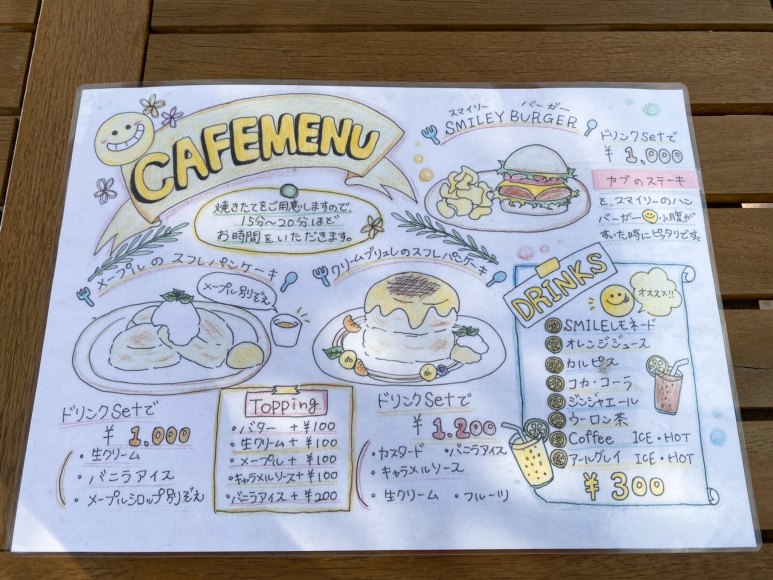 CAFEMENU
焼きたてをご用意しますので、
15分〜20分ほど
お時間をいただきます。
スマイリー バーガー
SMILEY BURGER
ドリンクSetで
¥1,000
カブのステーキ
と、スマイリーのハン
バーガー 小腹が
すいた時にピッタリです。
メープルの スフレパンケーキ
メープル別ぞえ
ドリンクSetで
¥1,000
・生クリーム
・バニラアイス
・メープルシロップ別ぞえ
Topping
・バター +¥100
・生クリーム+ ¥100
・メープル + ¥100
・キャラメルソース+¥100
・バニラアイス+ ¥200
クリームブリュレのスフレパンケーキ
ドリンクSetで
¥1,200
・カスタード ・バニラアイス
・キャラメルソース
・生クリーム ・フルーツ
DRINKS
オススメ!!
SMILEレモネード
オレンジジュース
カルピス
コカ・コーラ
ジンジャエール
ウーロン茶
Coffee ICE・HOT
アールグレイ ICE・HOT
¥300